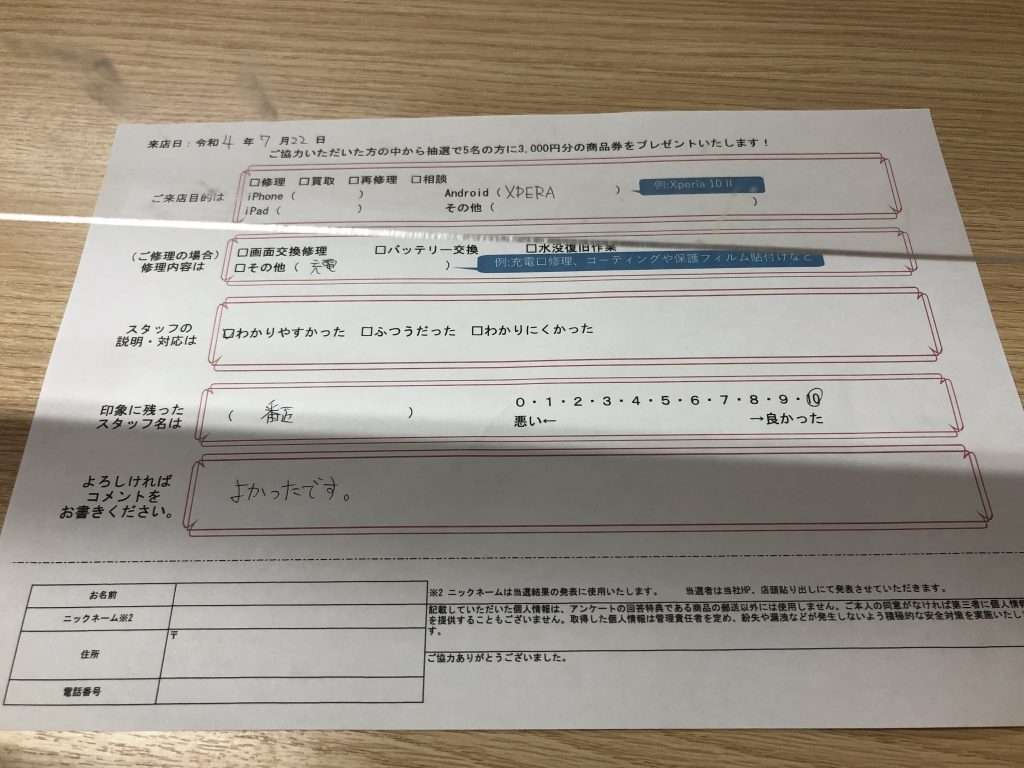 来店日：令和4年7月22日
ご協力いただいた方の中から抽選で5名の方に3,000円分の商品券をプレゼントいたします！
ご来店目的は
□修理 □買取 □再修理 □相談
iPhone（ ） Android（XPERA ） 例:Xperia 10 II
iPad（ ） その他（ ）
（ご修理の場合）
修理内容は
□画面交換修理 □バッテリー交換 □水没復旧作業
□その他（充電 ） 例:充電口修理、コーティングや保護フィルム貼付けなど
スタッフの
説明・対応は
□わかりやすかった □ふつうだった □わかりにくかった
印象に残った
スタッフ名は
（ ）
0・1・2・3・4・5・6・7・8・9・10
悪い← →良かった
よろしければ
コメントを
お書きください。
よかったです。
お名前
ニックネーム※2
住所
〒
電話番号
※2 ニックネームは当選結果の発表に使用いたします。 当選者は当社HP、店頭貼り出しにて発表させていただきます。
記載していただいた個人情報は、アンケートの回答特典である商品の郵送以外には使用しません。ご本人の同意がなければ第三者に個人情報
を提供することもございません。取得した個人情報は管理責任者を定め、紛失や漏洩などが発生しないよう積極的な安全対策を実施いたし
す。
ご協力ありがとうございました。